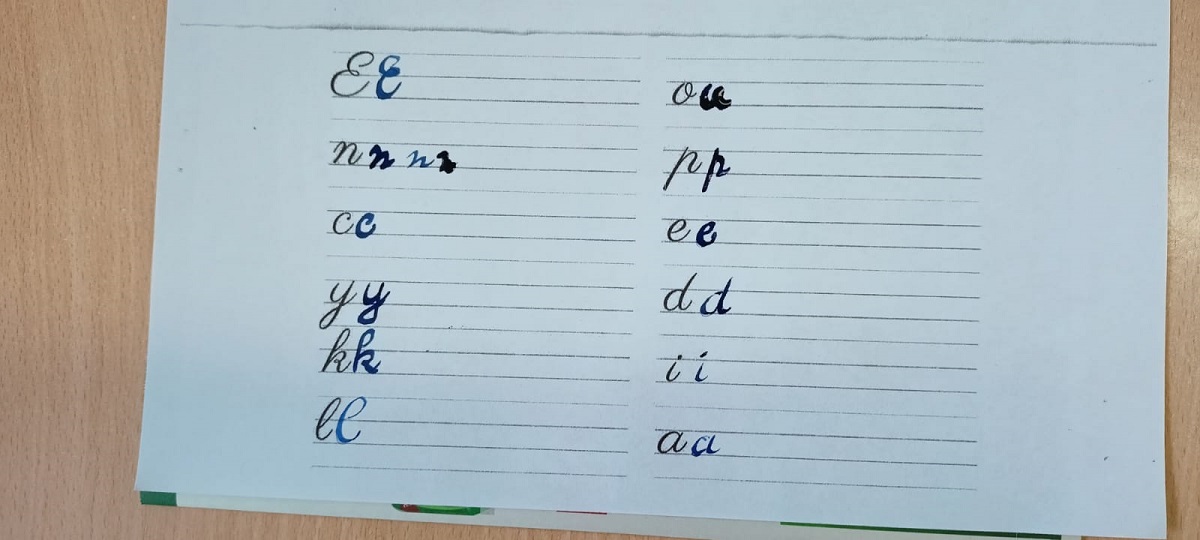 EE
nn nn
cc
yy
kk
ll
ou
pp
ee
dd
ii
aa